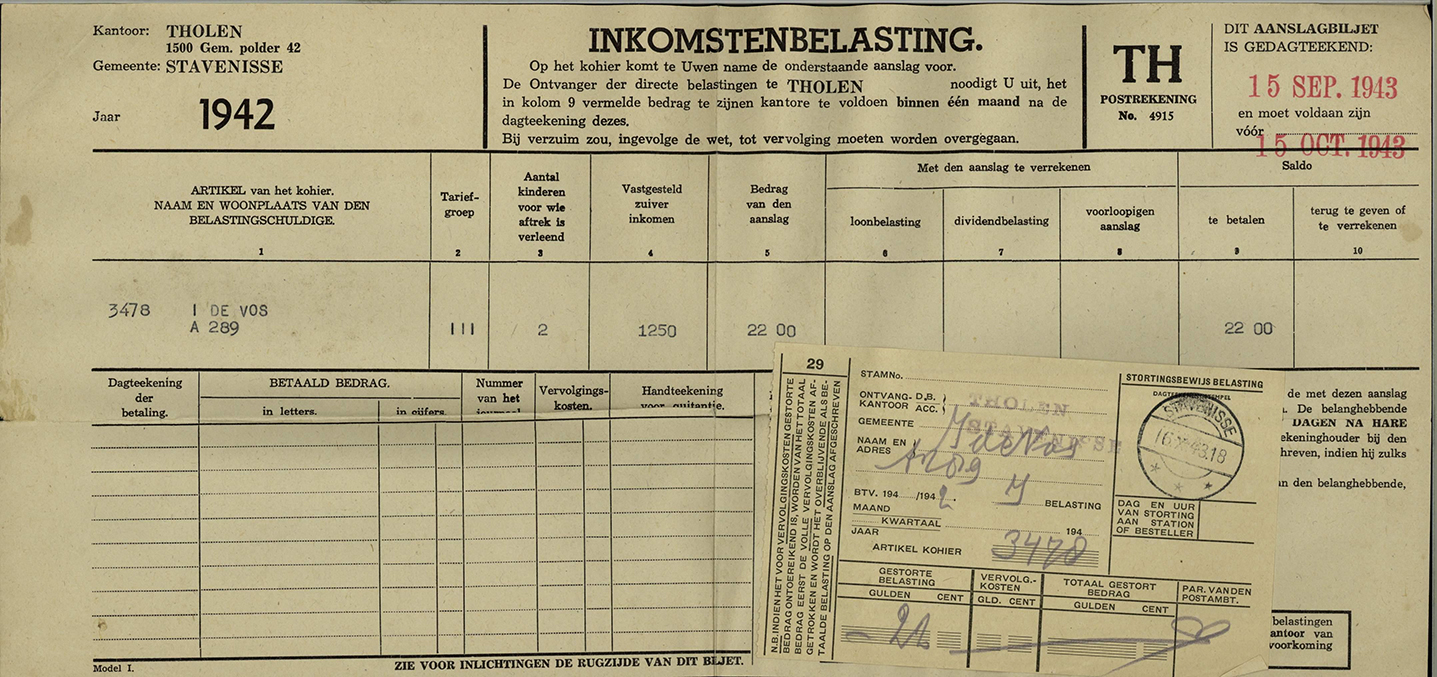 Kantoor: THOLEN
1500 Gem. polder 42
Gemeente: STAVENISSE
Jaar 1942
INKOMSTENBELASTING.
Op het kohier komt te Uwen name de onderstaande aanslag voor.
De Ontvanger der directe belastingen te THOLEN noodigt U uit, het
in kolom 9 vermelde bedrag te zijnen kantore te voldoen binnen één maand na de
dagteekening dezes.
Bij verzuim zou, ingevolge de wet, tot vervolging moeten worden overgegaan.
TH
POSTREKENING
No. 4915
DIT AANSLAGBILJET
IS GEDAGTEEKEND:
15 SEP. 1943
en moet voldaan zijn
vóór
15 OCT. 1943
ARTIKEL van het kohier.
NAAM EN WOONPLAATS VAN DEN
BELASTINGSCHULDIGE.
1
Tarief-
groep
2
Aantal
kinderen
voor wie
aftrek is
verleend
3
Vastgesteld
zuiver
inkomen
4
Bedrag
van den
aanslag
5
Met den aanslag te verrekenen
loonbelasting
6
dividendbelasting
7
voorloopigen
aanslag
8
Saldo
te betalen
9
terug te geven of
te verrekenen
10
3478 I DE VOS
A 289
III 2 1250 22 00 22 00
Dagteekening
der
betaling.
BETAALD BEDRAG.
in letters. in cijfers.
Nummer
van het
journaal
Vervolgings-
kosten.
Handteekening
voor quitantie.
de met dezen aanslag
. De belanghebbende
DAGEN NA HARE
ekeninghouder bij den
hreven, indien hij zulks
an den belanghebbende,
belastingen
antoor van
voorkoming
Model I.
ZIE VOOR INLICHTINGEN DE RUGZIJDE VAN DIT BILJET.
29
N.B. INDIEN HET VOOR VERVOLGINGSKOSTEN GESTORTE
BEDRAG ONTOEREIKEND IS, WORDEN VAN HET TOTAAL
BEDRAG EERST DE VOLLE VERVOLGINGSKOSTEN AF-
GETROKKEN EN WORDT HET OVERBLIJVENDE ALS BE-
TAALDE BELASTING OP DEN AANSLAG AFGESCHREVEN
STAMNo.
ONTVANG- D.B.
KANTOOR ACC.
THOLEN
GEMEENTE STAVENISSE
NAAM EN
ADRES
J de Vos
BTV. 194 /194 2. BELASTING
MAAND
KWARTAAL
JAAR
194
ARTIKEL KOHIER 3478
STORTINGSBEWIJS BELASTING
STAVENISSE
DAG EN UUR
VAN STORTING
AAN STATION
OF BESTELLER
GESTORTE
BELASTING
GULDEN CENT
VERVOLG.-
KOSTEN
GLD. CENT
TOTAAL GESTORT
BEDRAG
GULDEN CENT
PAR. VAN DEN
POSTAMBT.